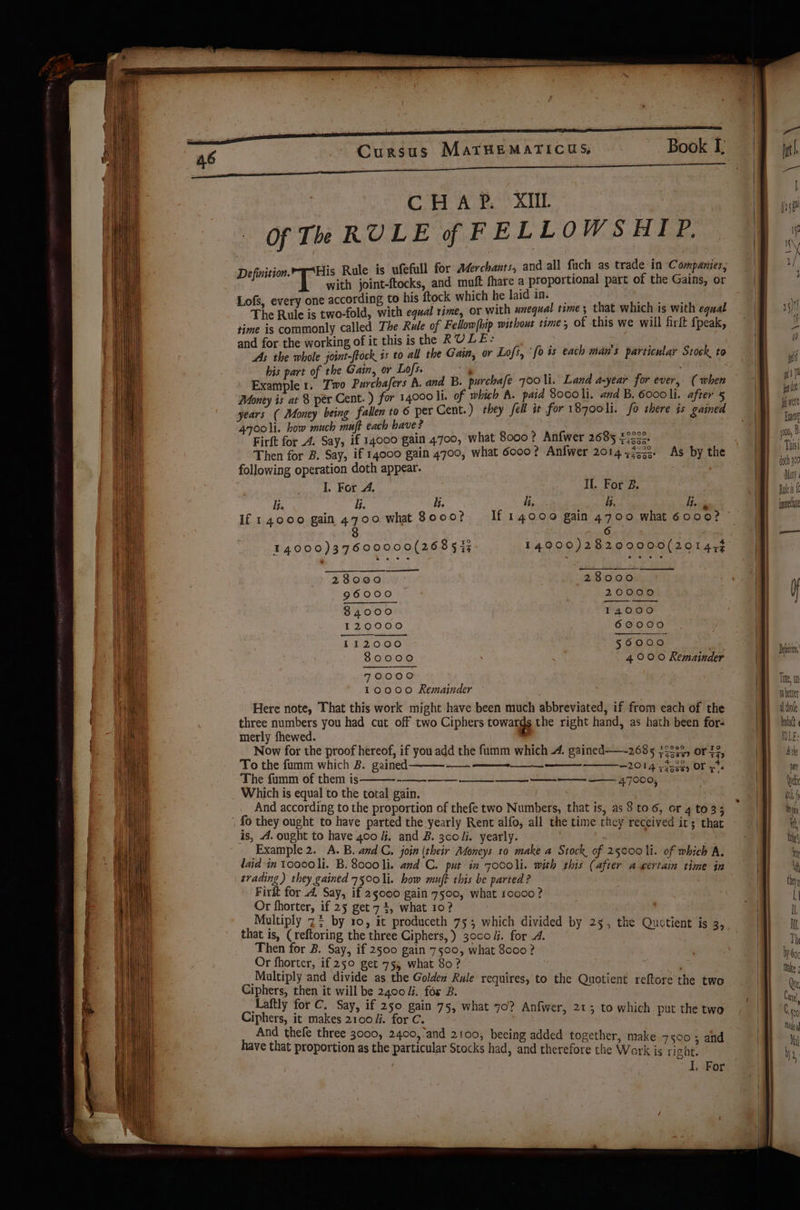 46 Cursus Mathematicus, Book I,
CHAP. XIII.
Of The RULE of FELLOWSHIP.
Definition. THis Rule is uſefull for Merchants, and all ſuch as trade in Companies,
with joint-ſtocks, and muſt ſhare a proportional part of the Gains, or
Loſs, every one according to his ſtock which he laid in.
The Rule is two-fold, with equal time, or with unequal time; that which is with equal
time is commonly called The Rule of Fellowſhip without time; of this we will firſt ſpeak,
and for the working of it this is the RULE:
As the whole joint-ſtock is to all the Gain, or Loſs, ſo is each man's particular Stock, to
his part of the Gain, or Loſs.
Example 1. Two Purchaſers A. and B. purchaſe 700 li. Land a-year for ever, (when
Money is at 8 per Cent.) for 14000 li. of which A. paid 8000 li. and B. 6000 li. after 5
years (Money being fallen to 6 per Cent.) they ſell it for 18700 li. ſo there is gained
4700 li. how much muſt each have?
Firſt for A. Say, if 14000 gain 4700, what 8000? Anſwer 2685 10000/14000.
Then for B. Say, if 14000 gain 4700, what 6000? Anſwer 2014 4000/14000. As by the
following operation doth appear.
I. For A. II. For B.
li. li. li. li. li. li.
If 14000 gain 4700 what 8000? If 14000 gain 4700 what 6000?
8 6
14000)37600000(2685 10/14 14000)28200000(2014 4/14
28000 28000
96000 20000
84000 14000
120000 60000
112000 56000
80000 4000 Remainder
70000
10000 Remainder
Here note, That this work might have been much abbreviated, if from each of the
three numbers you had cut off two Ciphers towards the right hand, as hath been for-
merly ſhewed.
Now for the proof hereof, if you add the ſumm which A. gained——2685 10000/14000, or 10/14,
To the ſumm which B. gained——2014 4000/14000, or 4/14.
The ſumm of them is——47000,
Which is equal to the total gain.
And according to the proportion of theſe two Numbers, that is, as 8 to 6, or 4 to 3;
ſo they ought to have parted the yearly Rent alſo, all the time they received it; that
is, A. ought to have 400 li. and B. 300 li. yearly.
Example 2. A. B. and C. join (their Moneys to make a Stock of 25000 li. of which A.
laid in 10000 li. B. 8000 li. and C. put in 7000 li. with this (after a certain time in
trading) they gained 7500 li. how muſt this be parted?
Firſt for A. Say, if 25000 gain 7500, what 10000?
Or ſhorter, if 25 get 7½, what 10?
Multiply 7½ by 10, it produceth 75; which divided by 25, the Quotient is 3,
that is, (reſtoring the three Ciphers,) 3000 li. for A.
Then for B. Say, if 2500 gain 7500, what 8000?
Or ſhorter, if 250 get 75, what 80?
Multiply and divide as the Golden Rule requires, to the Quotient reſtore the two
Ciphers, then it will be 2400 li. for B.
Laſtly for C. Say, if 250 gain 75, what 70? Anſwer, 21; to which put the two
Ciphers, it makes 2100 li. for C.
And theſe three 3000, 2400, and 2100, beeing added together, make 7500; and
have that proportion as the particular Stocks had, and therefore the Work is right.
I. For